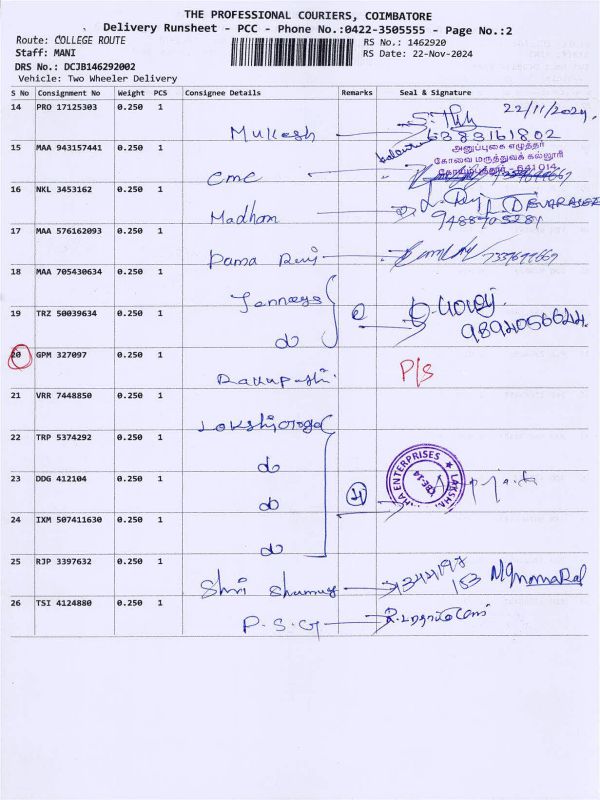 THE PROFESSIONAL COURIERS, COIMBATORE
Delivery Runsheet - PCC - Phone No.:0422-3505555 - Page No.:2
Route: COLLEGE ROUTE RS No.: 1462920
Staff: MANI RS Date: 22-Nov-2024
DRS No.: DCJB146292002
Vehicle: Two Wheeler Delivery
S No Consignment No Weight PCS Consignee Details Remarks Seal & Signature
14 PRO 17125303 0.250 1 22/11/2024
Mukesh 6383161802
15 MAA 943157441 0.250 1 அனுப்புகை எழுத்தர்
கோவை மருத்துவக் கல்லூரி
cmc கோயம்புத்தூர் - 641 014
16 NKL 3453162 0.250 1 DEVARAJ
Madhan 9488705281
17 MAA 576162093 0.250 1
Rama Ravi 7339699667
18 MAA 705430634 0.250 1
19 TRZ 50039634 0.250 1
do 9894056644
20 GPM 327097 0.250 1 P/S
21 VRR 7448850 0.250 1
22 TRP 5374292 0.250 1
do
23 DDG 412104 0.250 1 4 ENTERPRISES LAKSH
do
24 IXM 507411630 0.250 1
do
25 RJP 3397632 0.250 1
Shri Shanmug
26 TSI 4124880 0.250 1
P.S.G